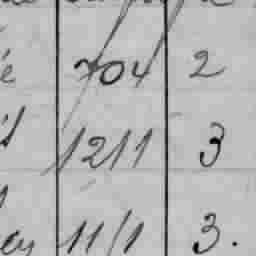 é 704 2
1211 3
ey 11/1 3.